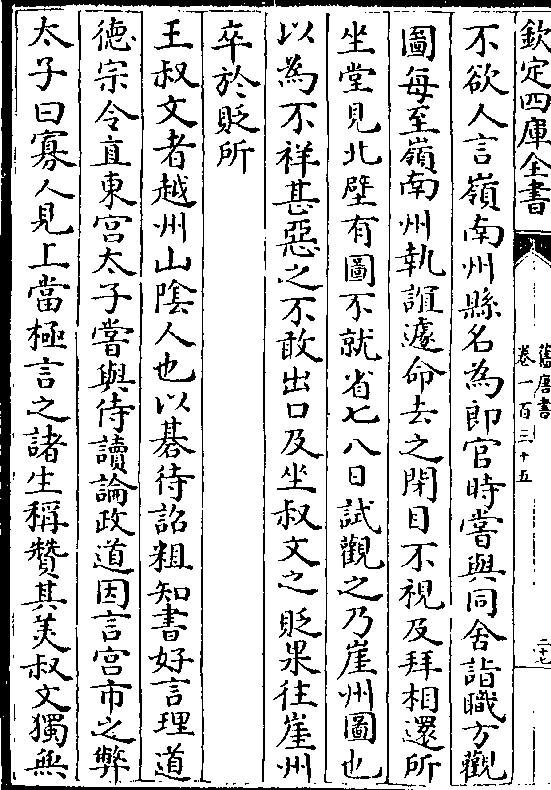 欽定四庫全書
舊唐書
卷一百三十五
二十七
不欲人言嶺南州縣名為郎官時嘗與同舍詣職方觀
圖每至嶺南州執誼遽命去之閉目不視及拜相還所
坐堂見北壁有圖不就省七八日試觀之乃崖州圖也
以為不祥甚惡之不敢出口及坐叔文之貶果往崖州
卒於貶所
王叔文者越州山陰人也以碁待詔粗知書好言理道
德宗令直東宮太子嘗與侍讀論政道因言宮市之弊
太子曰寡人見上當極言之諸生稱贊其美叔文獨無